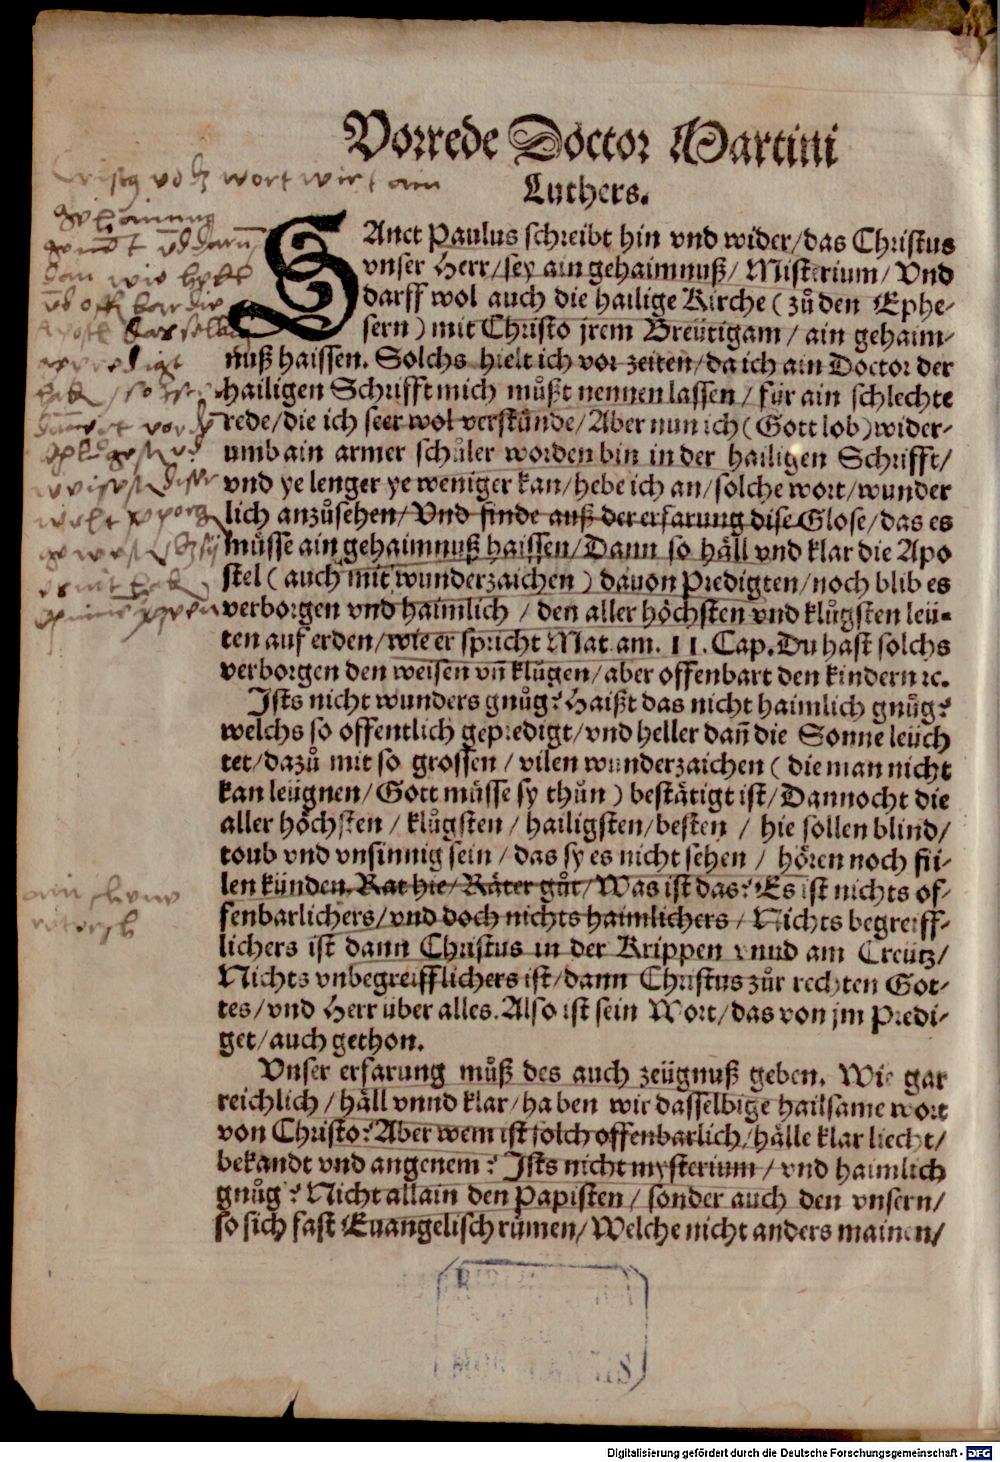 Vorrede Doctor Martini
Luthers.
SAnct Paulus schreibt hin vnd wider/das Christus
vnser Herr/sey ain gehaimnuß/ Misterium/ Vnd
darff wol auch die hailige Kirche (zů den Ephe-
sern) mit Christo jrem Breütigam/ ain gehaim-
nuß haissen. Solchs hielt ich vor zeiten/da ich ain Doctor der
hailigen Schrifft mich můßt nennen lassen/ für ain schlechte
rede/die ich seer wol verstünde/Aber nun ich (Gott lob) wider-
umb ain armer schůler worden bin in der hailigen Schrifft/
vnd ye lenger ye weniger kan/hebe ich an/solche wort/wunder
lich anzůsehen/Vnd finde auß der erfarung dise Glose/das es
müsse ain gehaimnuß haissen/Dann so häll vnd klar die Apo
stel (auch mit wunderzaichen) dauon Predigten/noch blib es
verborgen vnd haimlich / den aller höchsten vnd klůgsten leü-
ten auf erden/wie er spricht Mat. am. 11. Cap. Du hast solchs
verborgen den weisen vn̄ klůgen/aber offenbart den kindern ꝛc.
Ists nicht wunders gnůg? Haißt das nicht haimlich gnůg?
welchs so offentlich gepredigt/vnd heller dañ die Sonne leüch
tet/dazů mit so grossen / vilen wunderzaichen (die man nicht
kan leügnen/Gott müsse sy thůn) bestätigt ist/Dannocht die
aller höchsten / klůgsten / hailigsten/besten / hie sollen blind/
toub vnd vnsinnig sein / das sy es nicht sehen / hören noch fü-
len künden. Rat hie/Räter gůt/Was ist das? Es ist nichts of-
fenbarlichers/vnd doch nichts haimlichers / Nichts begreiff-
lichers ist dann Christus in der Krippen vnnd am Creütz/
Nichts vnbegreifflichers ist/dann Christus zůr rechten Got-
tes/vnd Herr über alles. Also ist sein Wort/das von jm Predi-
get/auch gethon.
Vnser erfarung můß des auch zeügnuß geben. Wie gar
reichlich/häll vnnd klar/haben wir dasselbige hailsame wort
von Christo? Aber wem ist solch offenbarlich/hälle klar liecht/
bekandt vnd angenem? Ists nicht mysterium/vnd haimlich
gnůg? Nicht allain den Papisten/ sonder auch den vnsern/
so sich fast Euangelisch růmen/Welche nicht anders mainen/
Digitalisierung gefördert durch die Deutsche Forschungsgemeinschaft - DFG